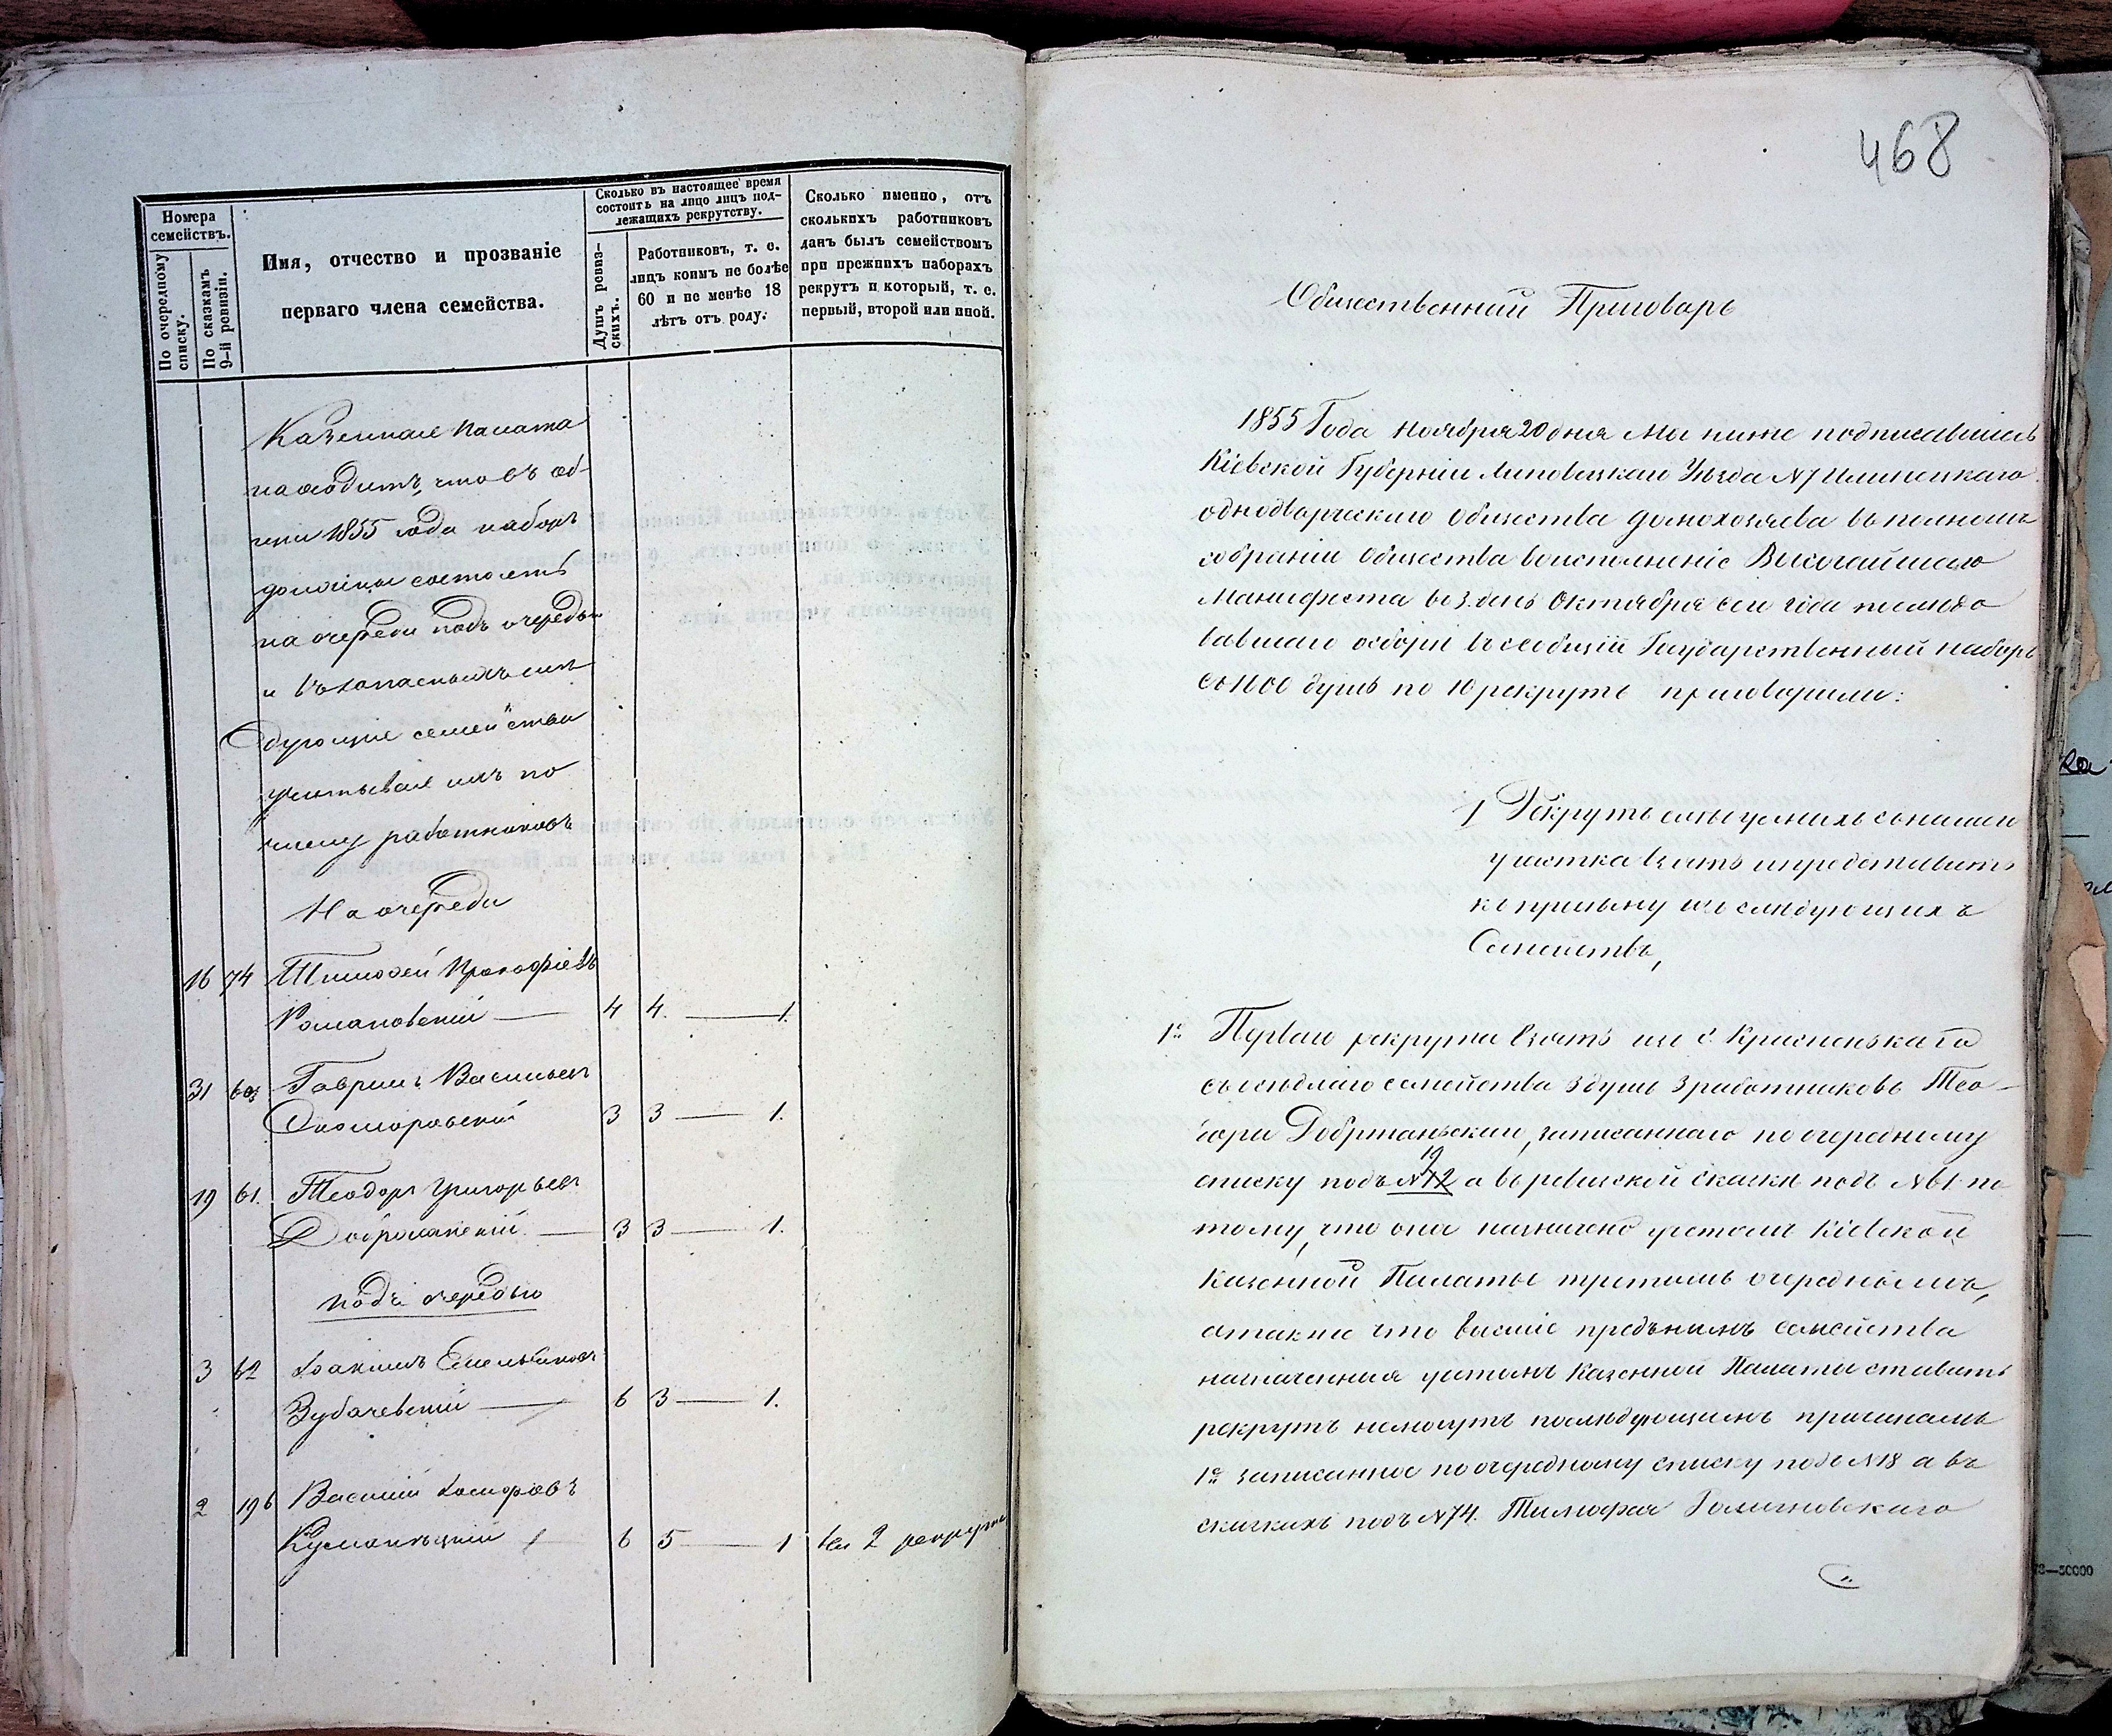 Номера семействъ.
По очередному списку.
По сказкамъ 9-й ревизіи.
Имя, отчество и прозваніе
перваго члена семейства.
Сколько въ настоящее время
состоитъ на лицо лицъ под-
лежащихъ рекрутству.
Душъ ревиз-
скихъ.
Работниковъ, т. е.
лицъ коимъ не болѣе
60 и не менѣе 18
лѣтъ отъ роду.
Сколько именно, отъ
сколькихъ работниковъ
данъ былъ семействомъ
при прежнихъ наборахъ
рекрутъ и который, т. е.
первый, второй или иной.
Казенная Палата
находитъ, что въ
1855 года наборъ
должны состоять
на очереди подъ очередью
и въ запасныхъ слѣ
дующіе семейства
учитывая ихъ по
числу работниковъ
На очереди
16 74 Тимофей Прокофіевъ
Романовскій — 4 4. — 1.
31 Гаврилъ Васильевъ
Скоморовскій 3 3 — 1.
19 61. Теодоръ Григорьевъ
Доброманскій — 3 3 — 1.
подъ очередью
3 62 Іоакимъ Емельяновъ
Зубачевскій — 6 3 — 1.
2 196 Василій
Куманѣцкій 6 5 — 1 2 рекрута
468
Общественний Приговаръ
1855 Года Ноября 20 дня Мы ниже подписавшиесь
Кіевской Губерніи Липовецкаго Уѣзда №7 Илинецкаго
однодворческаго общества домохозяева въ полномъ
собраніи общества воисполненіе Височайшаго
Манифеста в 3. день Октября сего года послѣдо
вавшаго осборѣ Государственный наборъ
Со 1000 душъ по 10 рекрутъ приговорили:
1 Рекрутъ снашаго
участка взять ипредставить
к приѣму изъ слѣдующихъ
Семействъ,
1е Перваго рекрута взять изъ с. Красненькаго
семейства 3 душъ 3 работниковъ Тео-
записаннаго по очередному
списку подъ №12 19 а въ ревизской сказки подъ №61 по
тому, что она назначено учетомъ Кіевской
Казенной Палаты третимъ очереднымъ,
атакже что висшіе предънимъ семейства
назначенния учетомъ Казенной Палати ставить
рекрутъ немогутъ послѣдующимъ причинамъ
1е записанное поочередному списку подъ №18 а въ
сказкахъ подъ №74. Тимофея Романовскаго